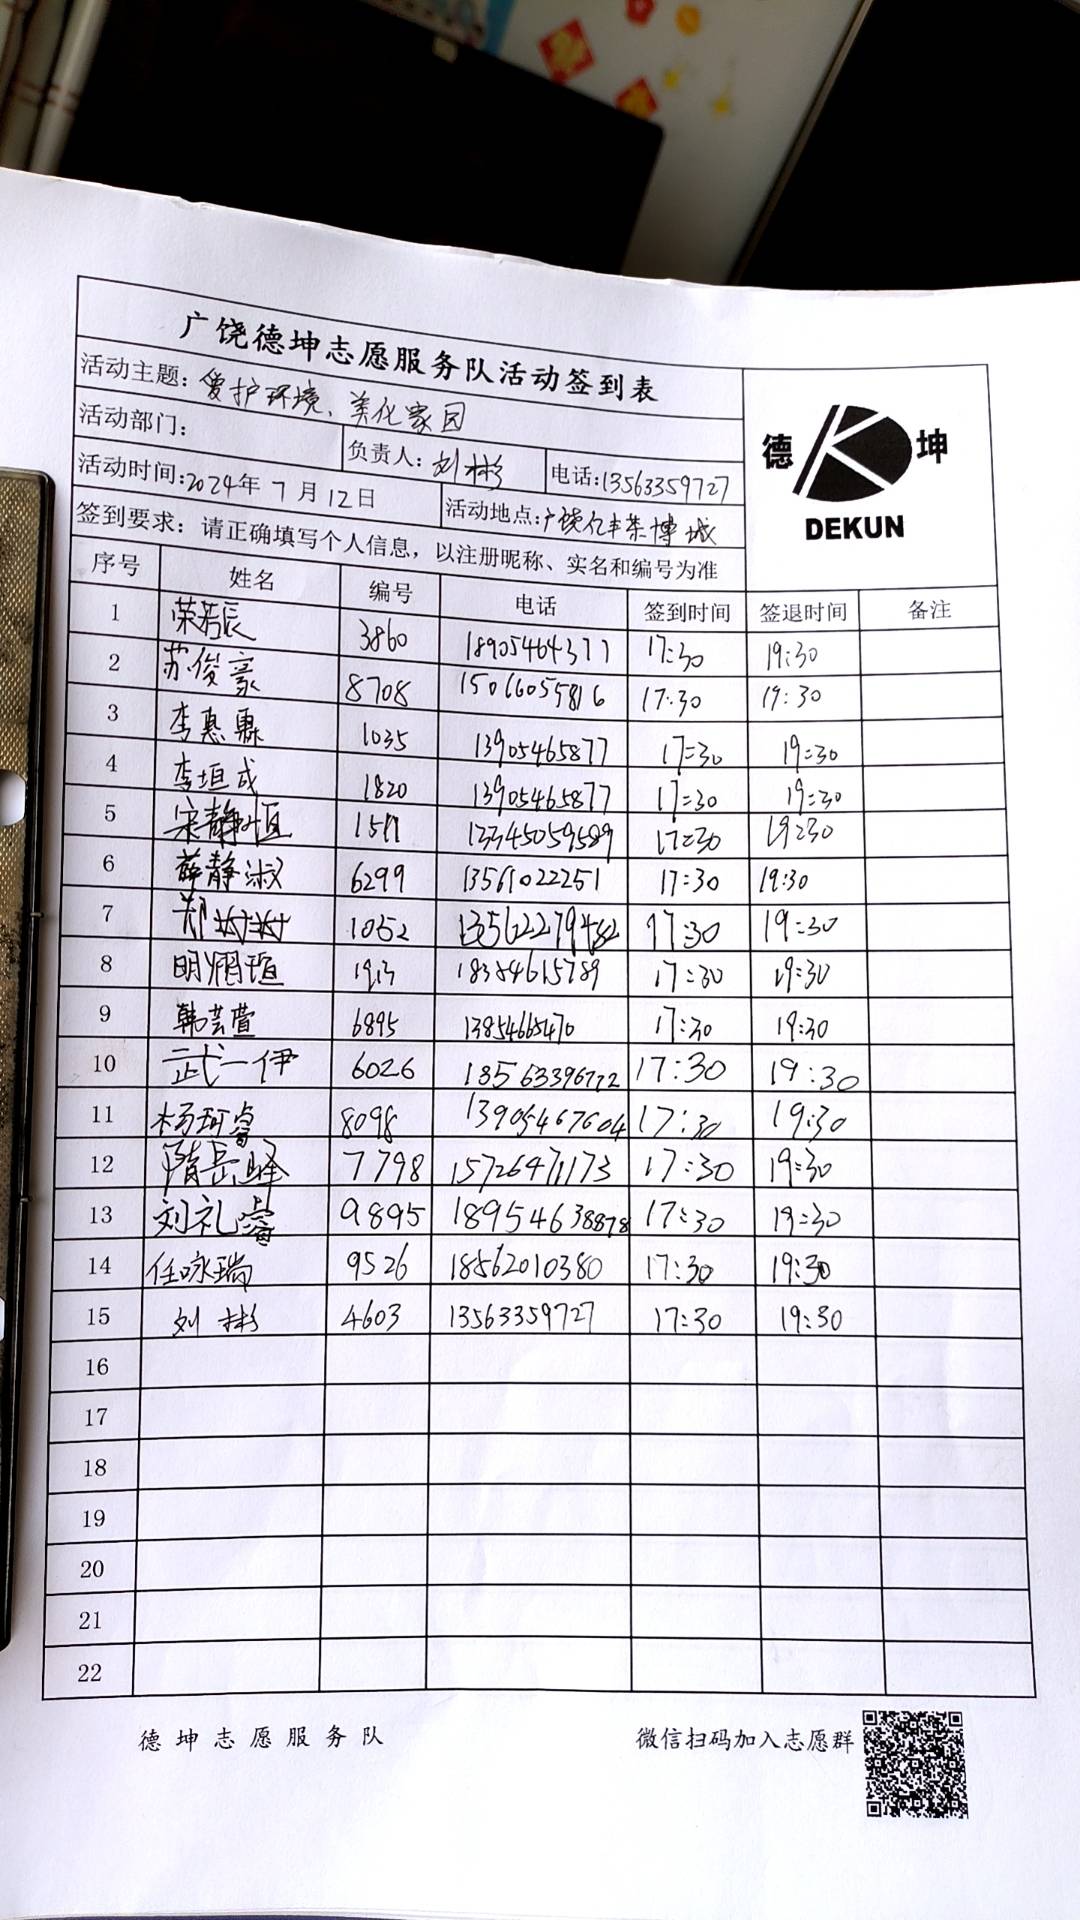 广饶德坤志愿服务队活动签到表
活动主题：爱护环境、美化家园
活动部门： 负责人：刘彬 电话：13563359727
活动时间：2024年7月12日 活动地点：广饶亿丰荣博城
签到要求：请正确填写个人信息，以注册昵称、实名和编号为准
德 坤
DEKUN
序号 姓名 编号 电话 签到时间 签退时间 备注
1 荣若辰 3860 18905464377 17:30 19:30
2 苏俊豪 8708 15066055816 17:30 19:30
3 李惠霖 1035 13905465877 17:30 19:30
4 李垣成 1820 13905465877 17:30 19:30
5 宋静恒 13345059589 17:30 19:30
6 薛静淑 6299 13561022251 17:30 19:30
7 郑树树 1052 13562279482 17:30 19:30
8 1913 17:30 19:30
9 韩芸萱 6895 13854665470 17:30 19:30
10 武一伊 6026 18563396772 17:30 19:30
11 杨珂睿 8098 13905467604 17:30 19:30
12 隋岳峰 7798 15726471173 17:30 19:30
13 刘礼睿 9895 18954638878 17:30 19:30
14 任咏瑞 9526 18562010380 17:30 19:30
15 刘彬 4603 13563359727 17:30 19:30
16
17
18
19
20
21
22
德坤志愿服务队 微信扫码加入志愿群